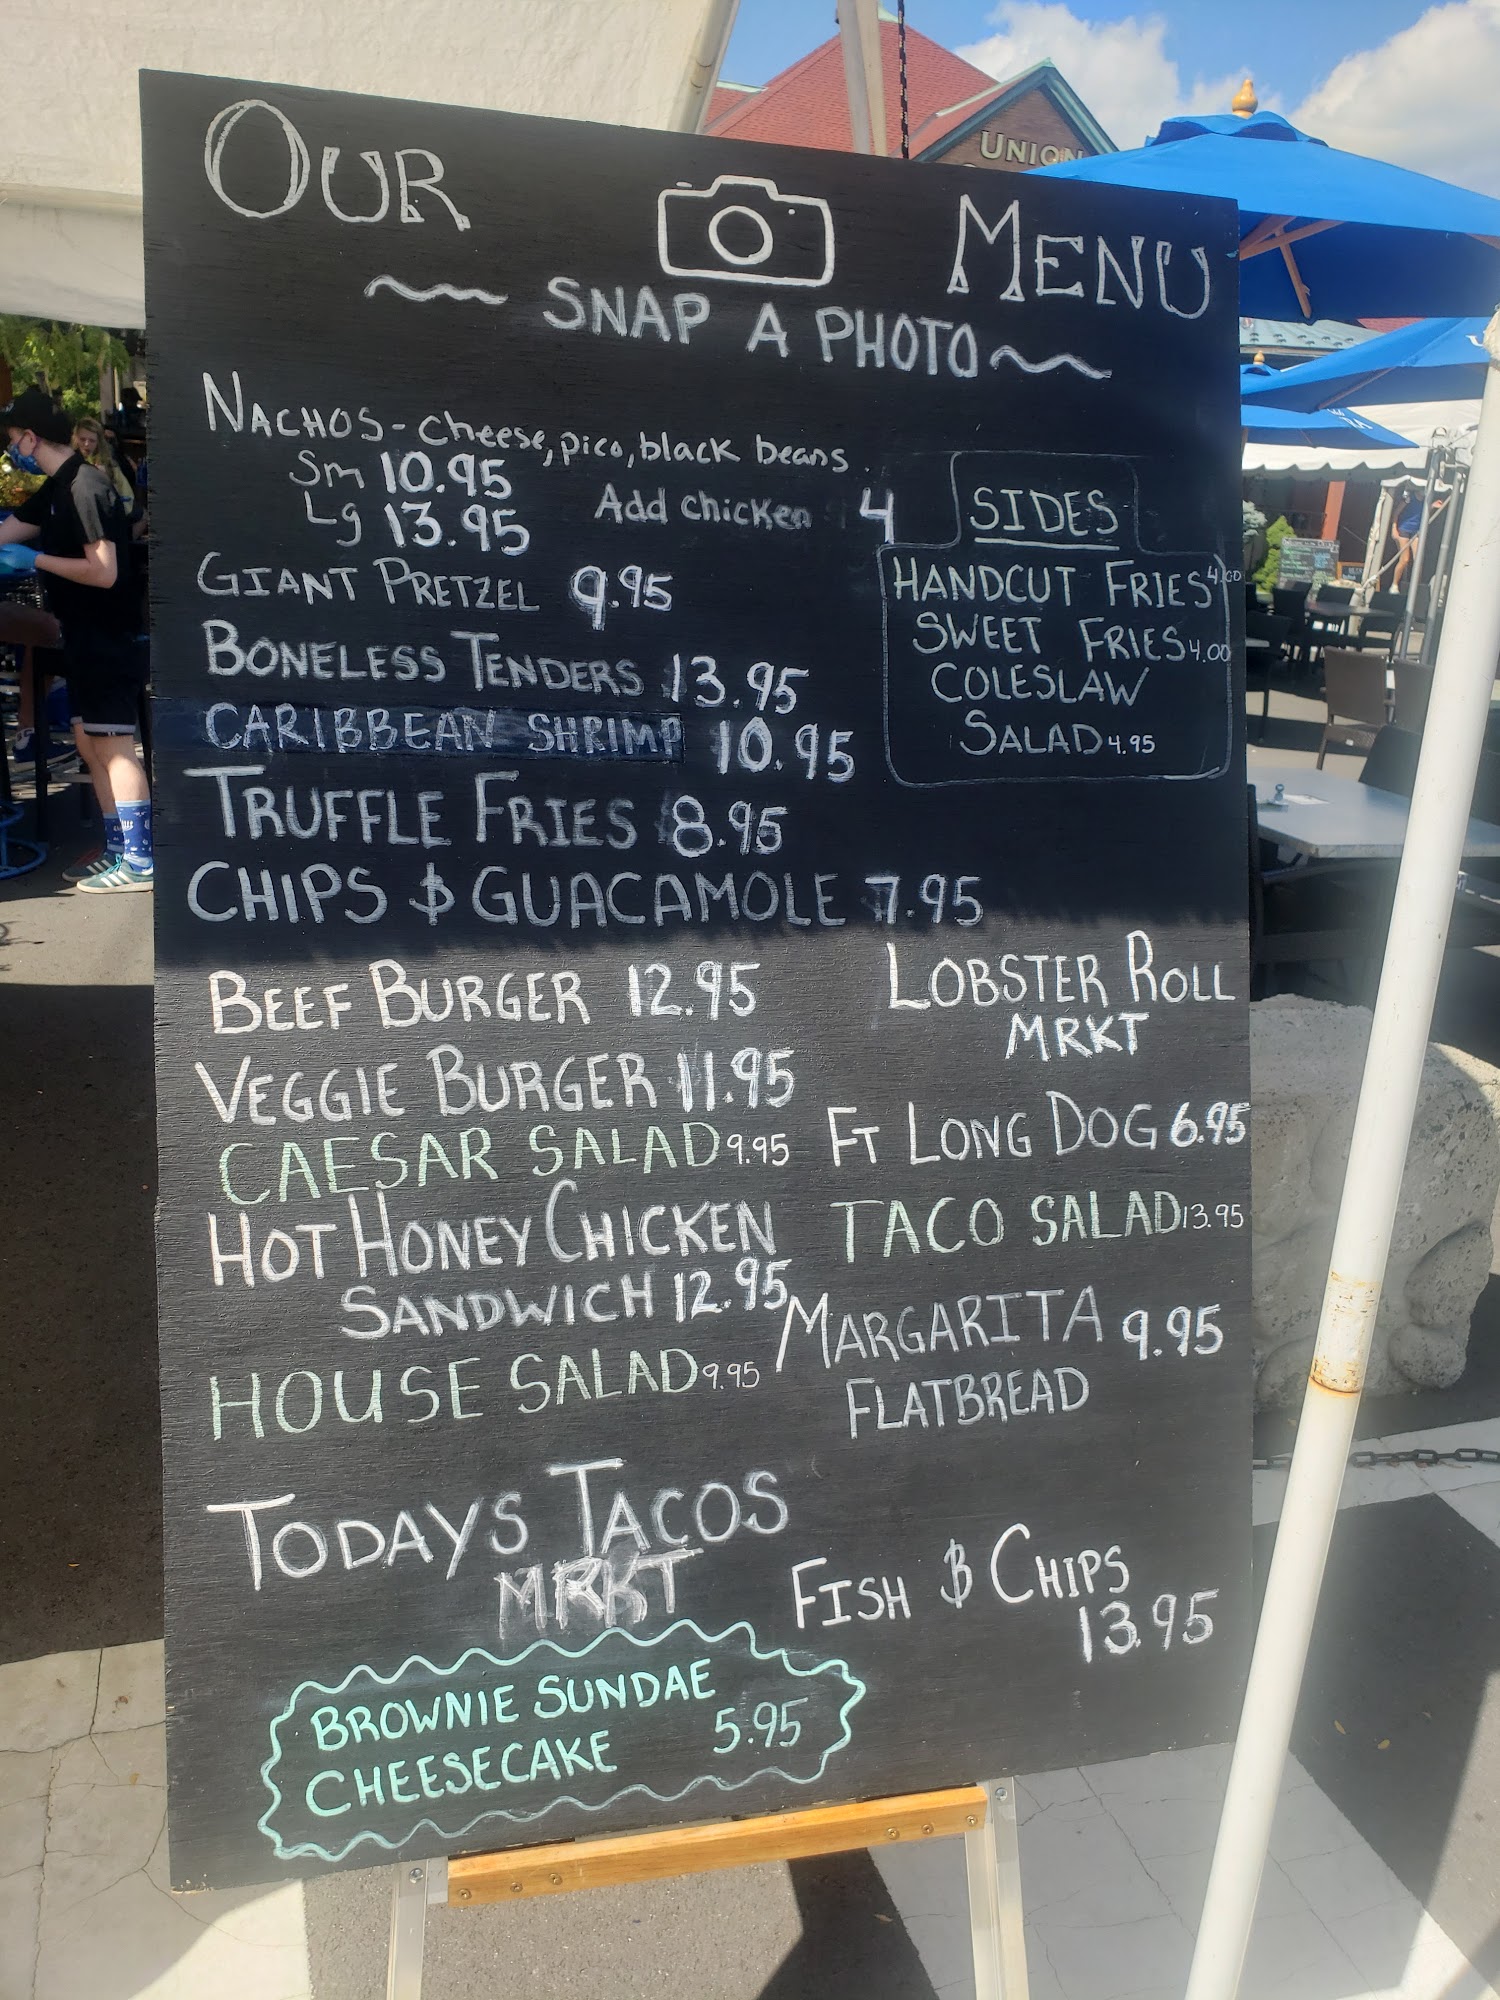 UNION
OUR MENU
SNAP A PHOTO
NACHOS - cheese, pico, black beans
Sm 10.95
Lg 13.95 Add chicken 4
GIANT PRETZEL 9.95
BONELESS TENDERS 13.95
CARIBBEAN SHRIMP 10.95
TRUFFLE FRIES 8.95
CHIPS & GUACAMOLE 7.95
SIDES
HANDCUT FRIES 4.00
SWEET FRIES 4.00
COLESLAW
SALAD 4.95
BEEF BURGER 12.95
VEGGIE BURGER 11.95
CAESAR SALAD 9.95
HOT HONEY CHICKEN
SANDWICH 12.95
HOUSE SALAD 9.95
LOBSTER ROLL
MRKT
FT LONG DOG 6.95
TACO SALAD 13.95
MARGARITA 9.95
FLATBREAD
TODAYS TACOS
MRKT
FISH & CHIPS
13.95
BROWNIE SUNDAE
CHEESECAKE 5.95